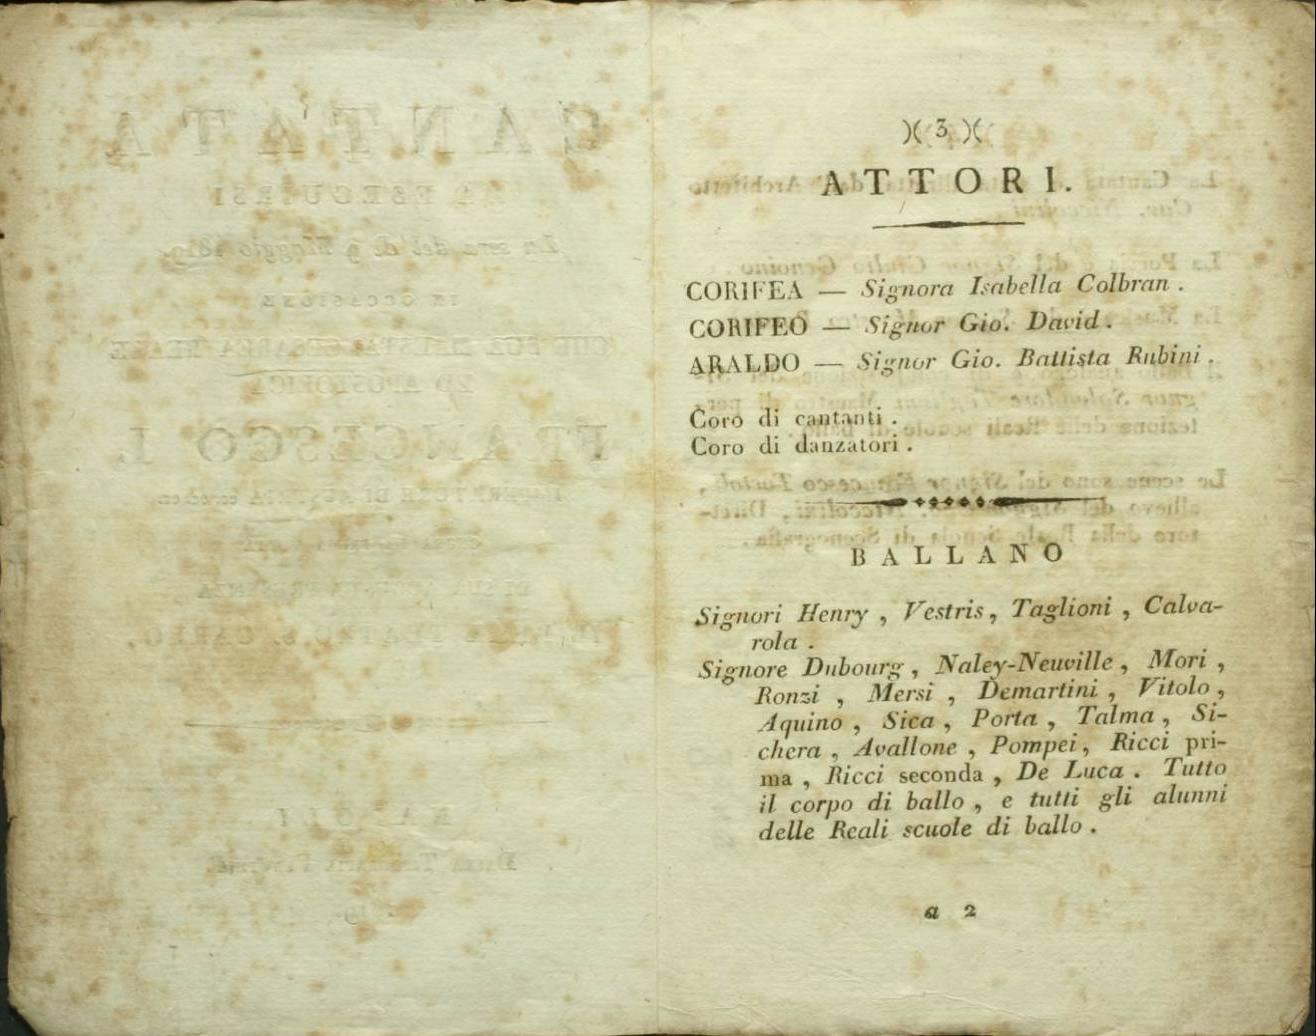 )( 3 )(
ATTORI.
CORIFEA — Signora Isabella Colbran .
CORIFEO — Signor Gio. David .
ARALDO — Signor Gio. Battista Rubini .
Coro di cantanti .
Coro di danzatori .
BALLANO
Signori Henry , Vestris, Taglioni , Calva-
rola .
Signore Dubourg , Naley-Neuville , Mori ,
Ronzi , Mersi , Demartini , Vitolo ,
Aquino , Sica , Porta , Talma , Si-
chera , Avallone , Pompei, Ricci pri-
ma , Ricci seconda , De Luca . Tutto
il corpo di ballo , e tutti gli alunni
delle Reali scuole di ballo .
a 2